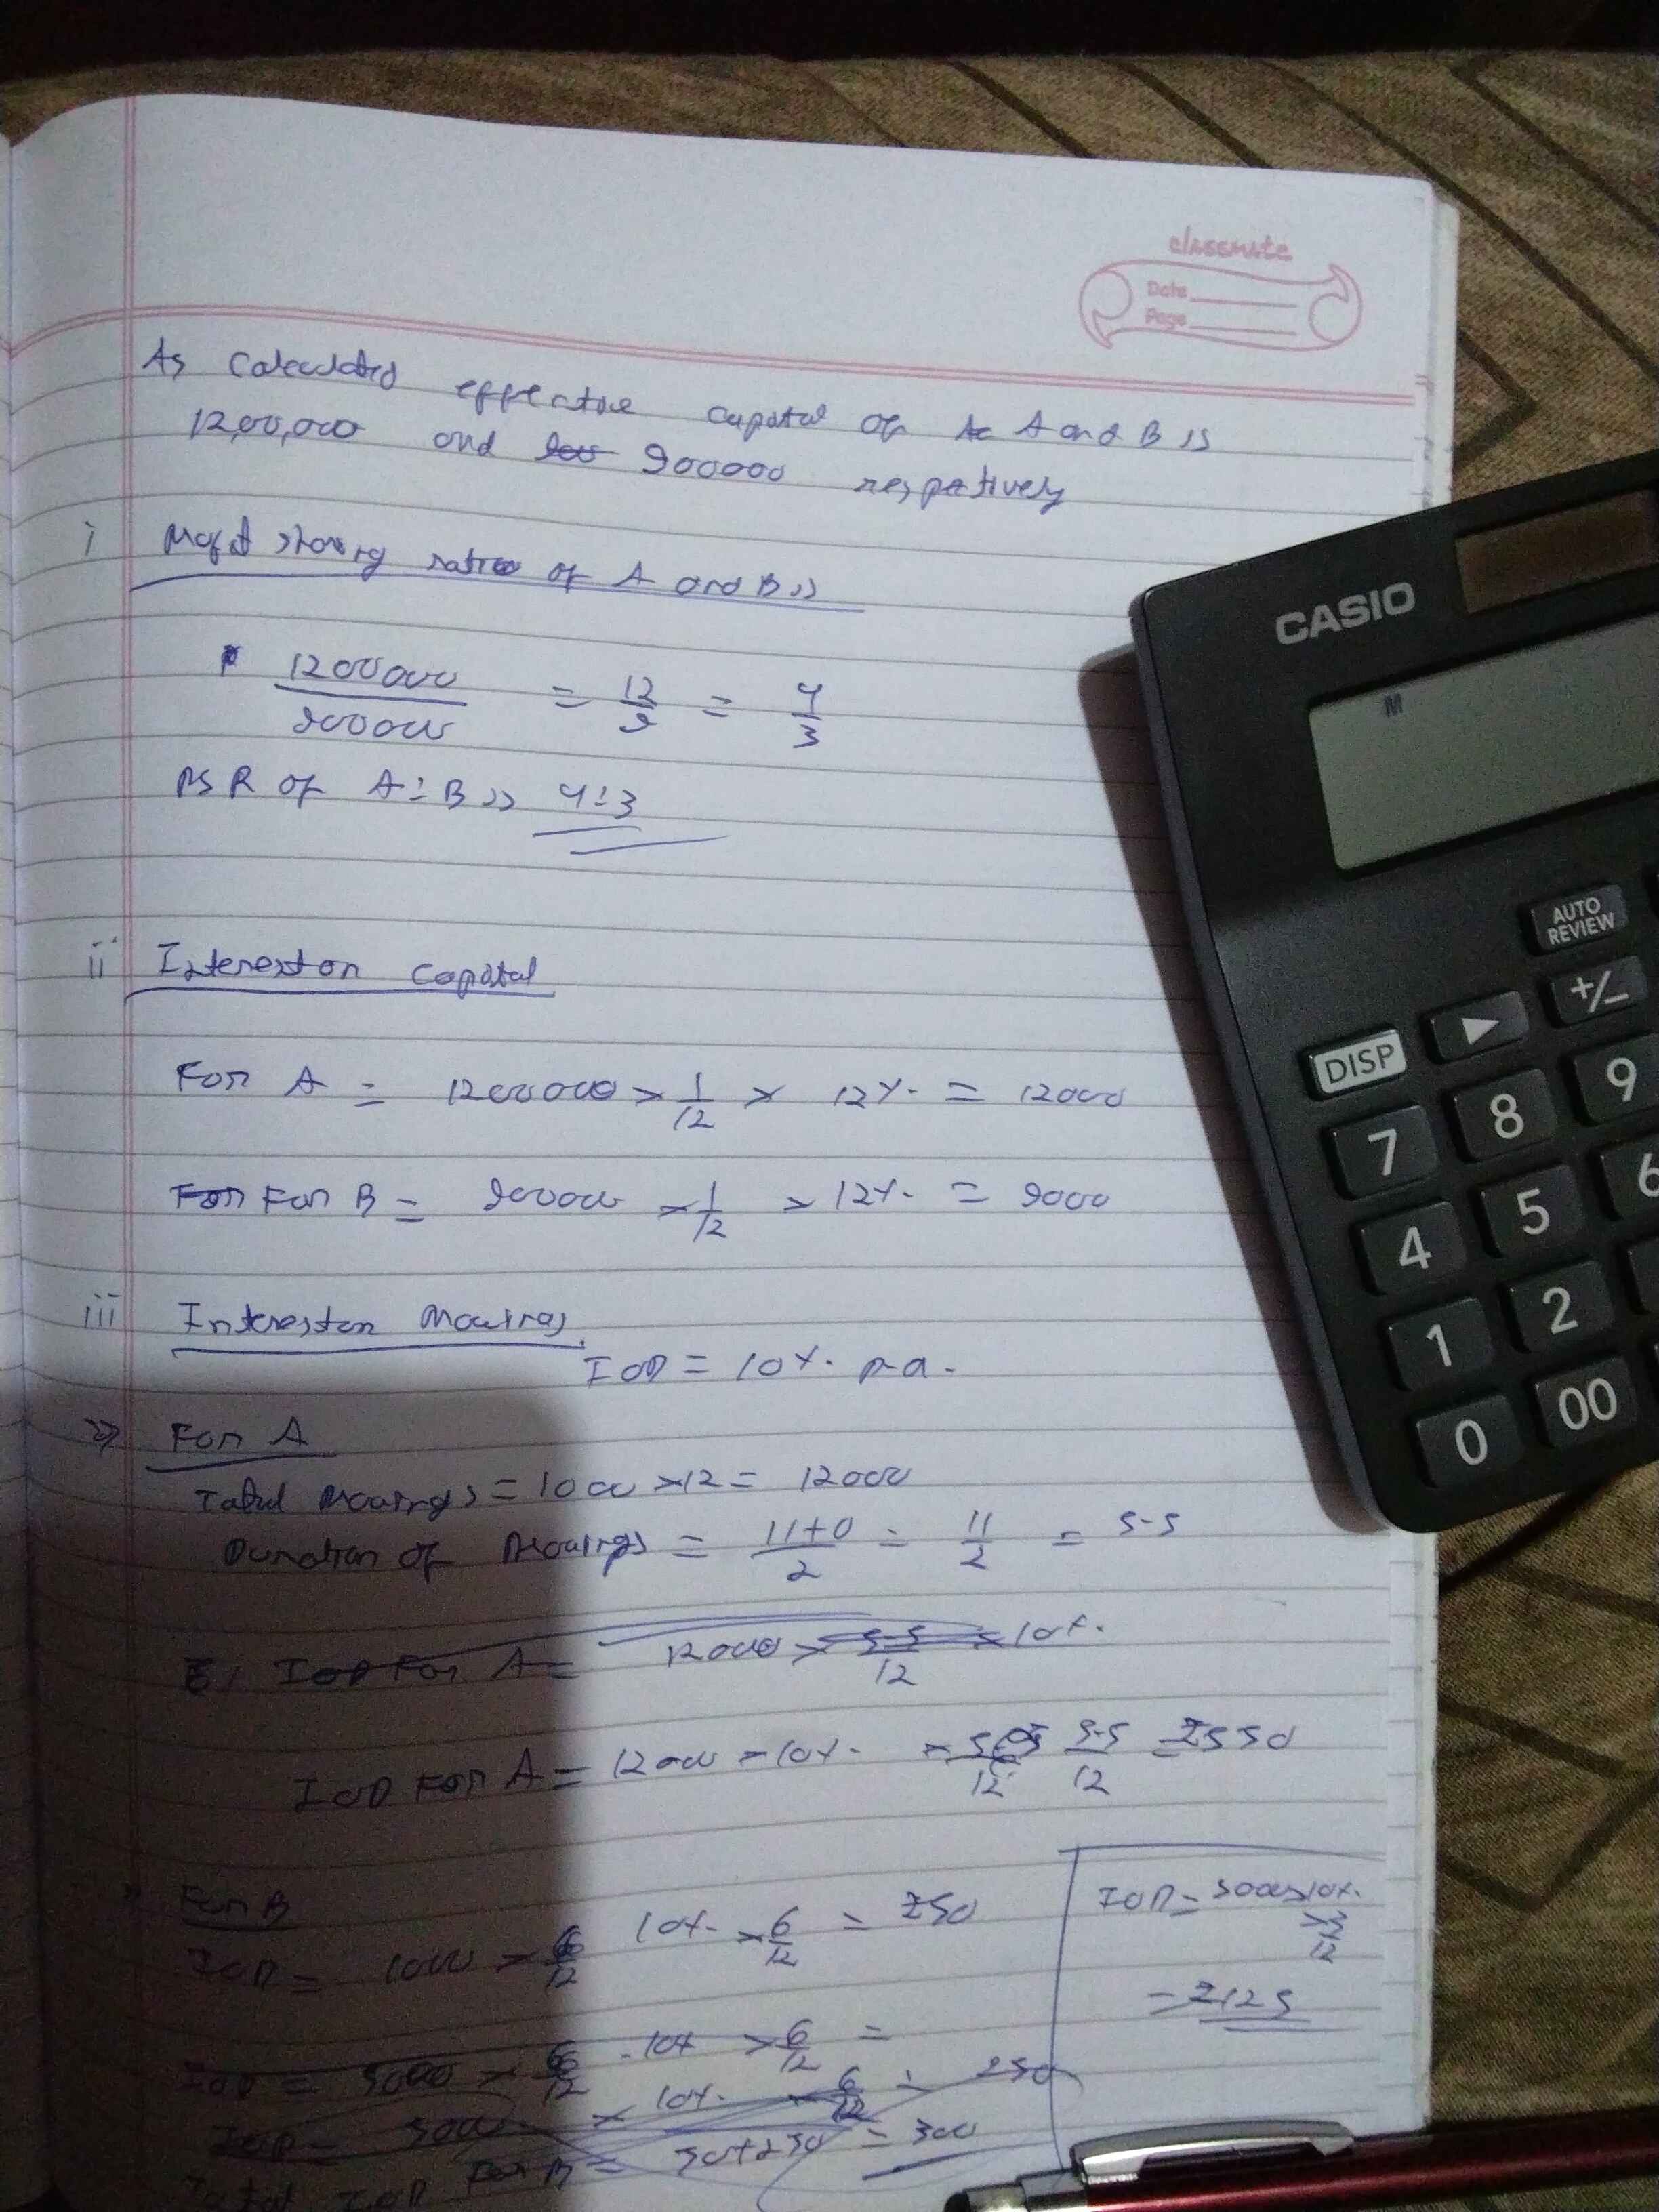 classmate
Date
Page
As calculated effective capital of A and B is
12,00,000 and 900000 respectively
i Profit sharing ratio of A and B is
1200000 / 900000 = 12/9 = 4/3
PSR of A:B is 4:3
ii Interest on capital
For A = 1200000 × 1/12 × 12% = 12000
For B = 900000 × 1/12 × 12% = 9000
iii Interest on Drawings
IOD = 10% p.a.
For A
Total Drawings = 1000 × 12 = 12000
Duration of Drawings = 11+0/2 = 11/2 = 5.5
IOD For A = 12000 × 5.5/12 × 10%
IOD For A = 12000 × 10% × 5.5/12 = ₹550
For B
IOD = 1000 × 10% × 6/12 = ₹50
IOD = 5000 × 10% × 3/12
= ₹125
IOD = 5000 × 10% × 6/12 =
IOD = 5000 × 10% × 6/12 = 250
Total IOD For B = 50+250 = 300
CASIO
M
AUTO REVIEW
DISP ▶ +/-
7 8 9
4 5 6
1 2
0 00